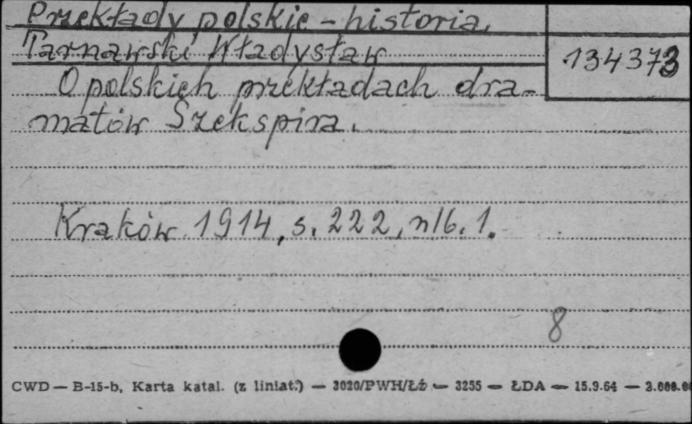 Przekłady polskie - historia.
Tarnawski Władysław
134373
O polskich przekładach dra-
matów Szekspira.
Kraków 1914, s. 222, nlb. 1.
8
CWD — B-15-b, Karta katal. (z liniat.) — 3020/PWH/Łź — 3255 — ŁDA — 15.9.64 — 3.000.0